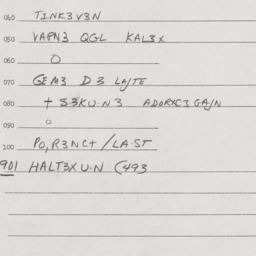 040 TINK3V3N
050 VAPN3 QGL KAL3X
060 O
070 GEM3 D3 LAJTE
080 + S3KU·N3 ADORXC3 GAJN
090 O
100 PO,R3NC+/LA·ST
901 HALT3XU·N (493